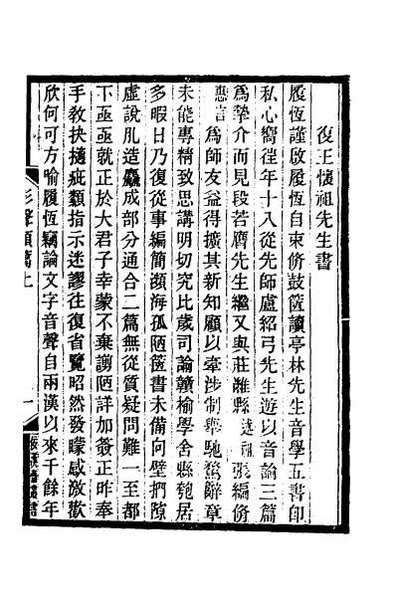 復王懷祖先生書
履恆謹啟履恆自束脩鼓篋讀亭林先生音學五書卽
私心嚮往年十八從先師盧紹弓先生遊以音論三篇
為摯介而見段若膺先生繼又與莊進縣述祖張編脩
惠言為師友益得擴其新知顧以牽涉制舉馳騖辭章
未能專精致思講明切究比歲司諭贛榆學舍縣匏居
多暇日乃復從事編簡瀕海孤陋篋書未備向壁捫隙
虛說肊造麤成部分通合二篇無從質疑問難一至都
下亟亟就正於大君子幸蒙不棄謭陋詳加簽正昨奉
手教抉擿疵纇指示迷謬往復省覽昭然發矇感激歡
欣何可方喻履恆竊論文字音聲自兩漢以來千餘年
形聲類篇上
一